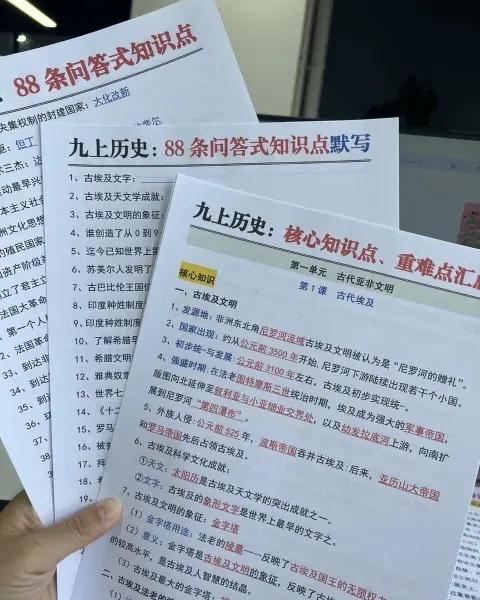 88 条问答式知识点
央集权制的封建国家：大化改新
但丁
九上历史：88 条问答式知识点默写
1、古埃及文字：
2、古埃及天文学成就：
3、古埃及文明的象征：
4、谁创造了从 0 到 9
5、迄今已知世界上第
6、苏美尔人发明了
7、古巴比伦王国位
8、印度种姓制度
9、印度种姓制度
10、了解希腊早
11、希腊文明
12、雅典奴隶
13、世界七
14、《十二
15、罗马
16、被
17、拜
18、
19、
法国大革命
第一个人
32、法国革命
33、到达非
34、到达
35、到达
36、
37、
九上历史：核心知识点、重难点汇总
第一单元 古代亚非文明
第 1 课 古代埃及
核心知识
一、古埃及文明
1、发源地：非洲东北角尼罗河流域古埃及文明被认为是“尼罗河的赠礼”。
2、国家出现：约从公元前 3500 年开始，尼罗河下游陆续出现若干个小国。
3、初步统一与发展：公元前 3100 年左右，古埃及初步实现统一。
4、强盛时期：在法老图特摩斯三世统治时期，埃及成为强大的军事帝国，
版图向北延伸至叙利亚与小亚细亚交界处，以及幼发拉底河上游，向南扩
展到尼罗河“第四瀑布”。
5、外族入侵：公元前 525 年，波斯帝国吞并古埃及；后来，亚历山大帝国
和罗马帝国先后占领古埃及。
6、古埃及科学文化成就：
①天文：太阳历是古埃及天文学的突出成就之一。
②文字：古埃及的象形文字是世界上最早的文字之一。
7、古埃及文明的象征：金字塔
（1）金字塔用途：法老的陵墓——反映了古埃及国王的无限权力
（2）意义：金字塔是古埃及文明的象征，反映了古埃
的较高水平，是古埃及人智慧的结晶。
（3）古埃及最大的金字塔：
二、古埃及法老的